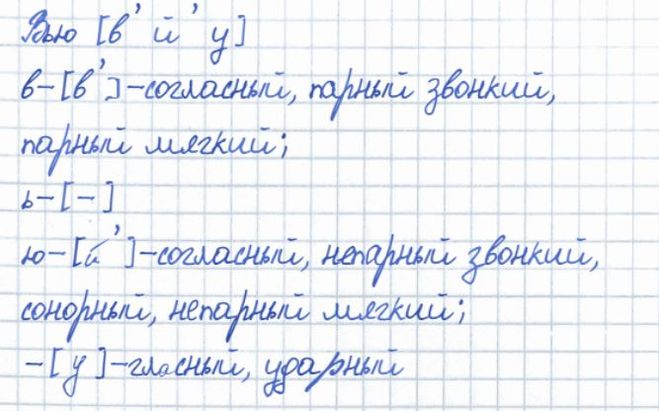 Вью [в' й' у]
в-[в']-согласный, парный звонкий,
парный мягкий;
ь-[-]
ю-[й']-согласный, непарный звонкий,
сонорный, непарный мягкий;
-[у]-гласный, ударный